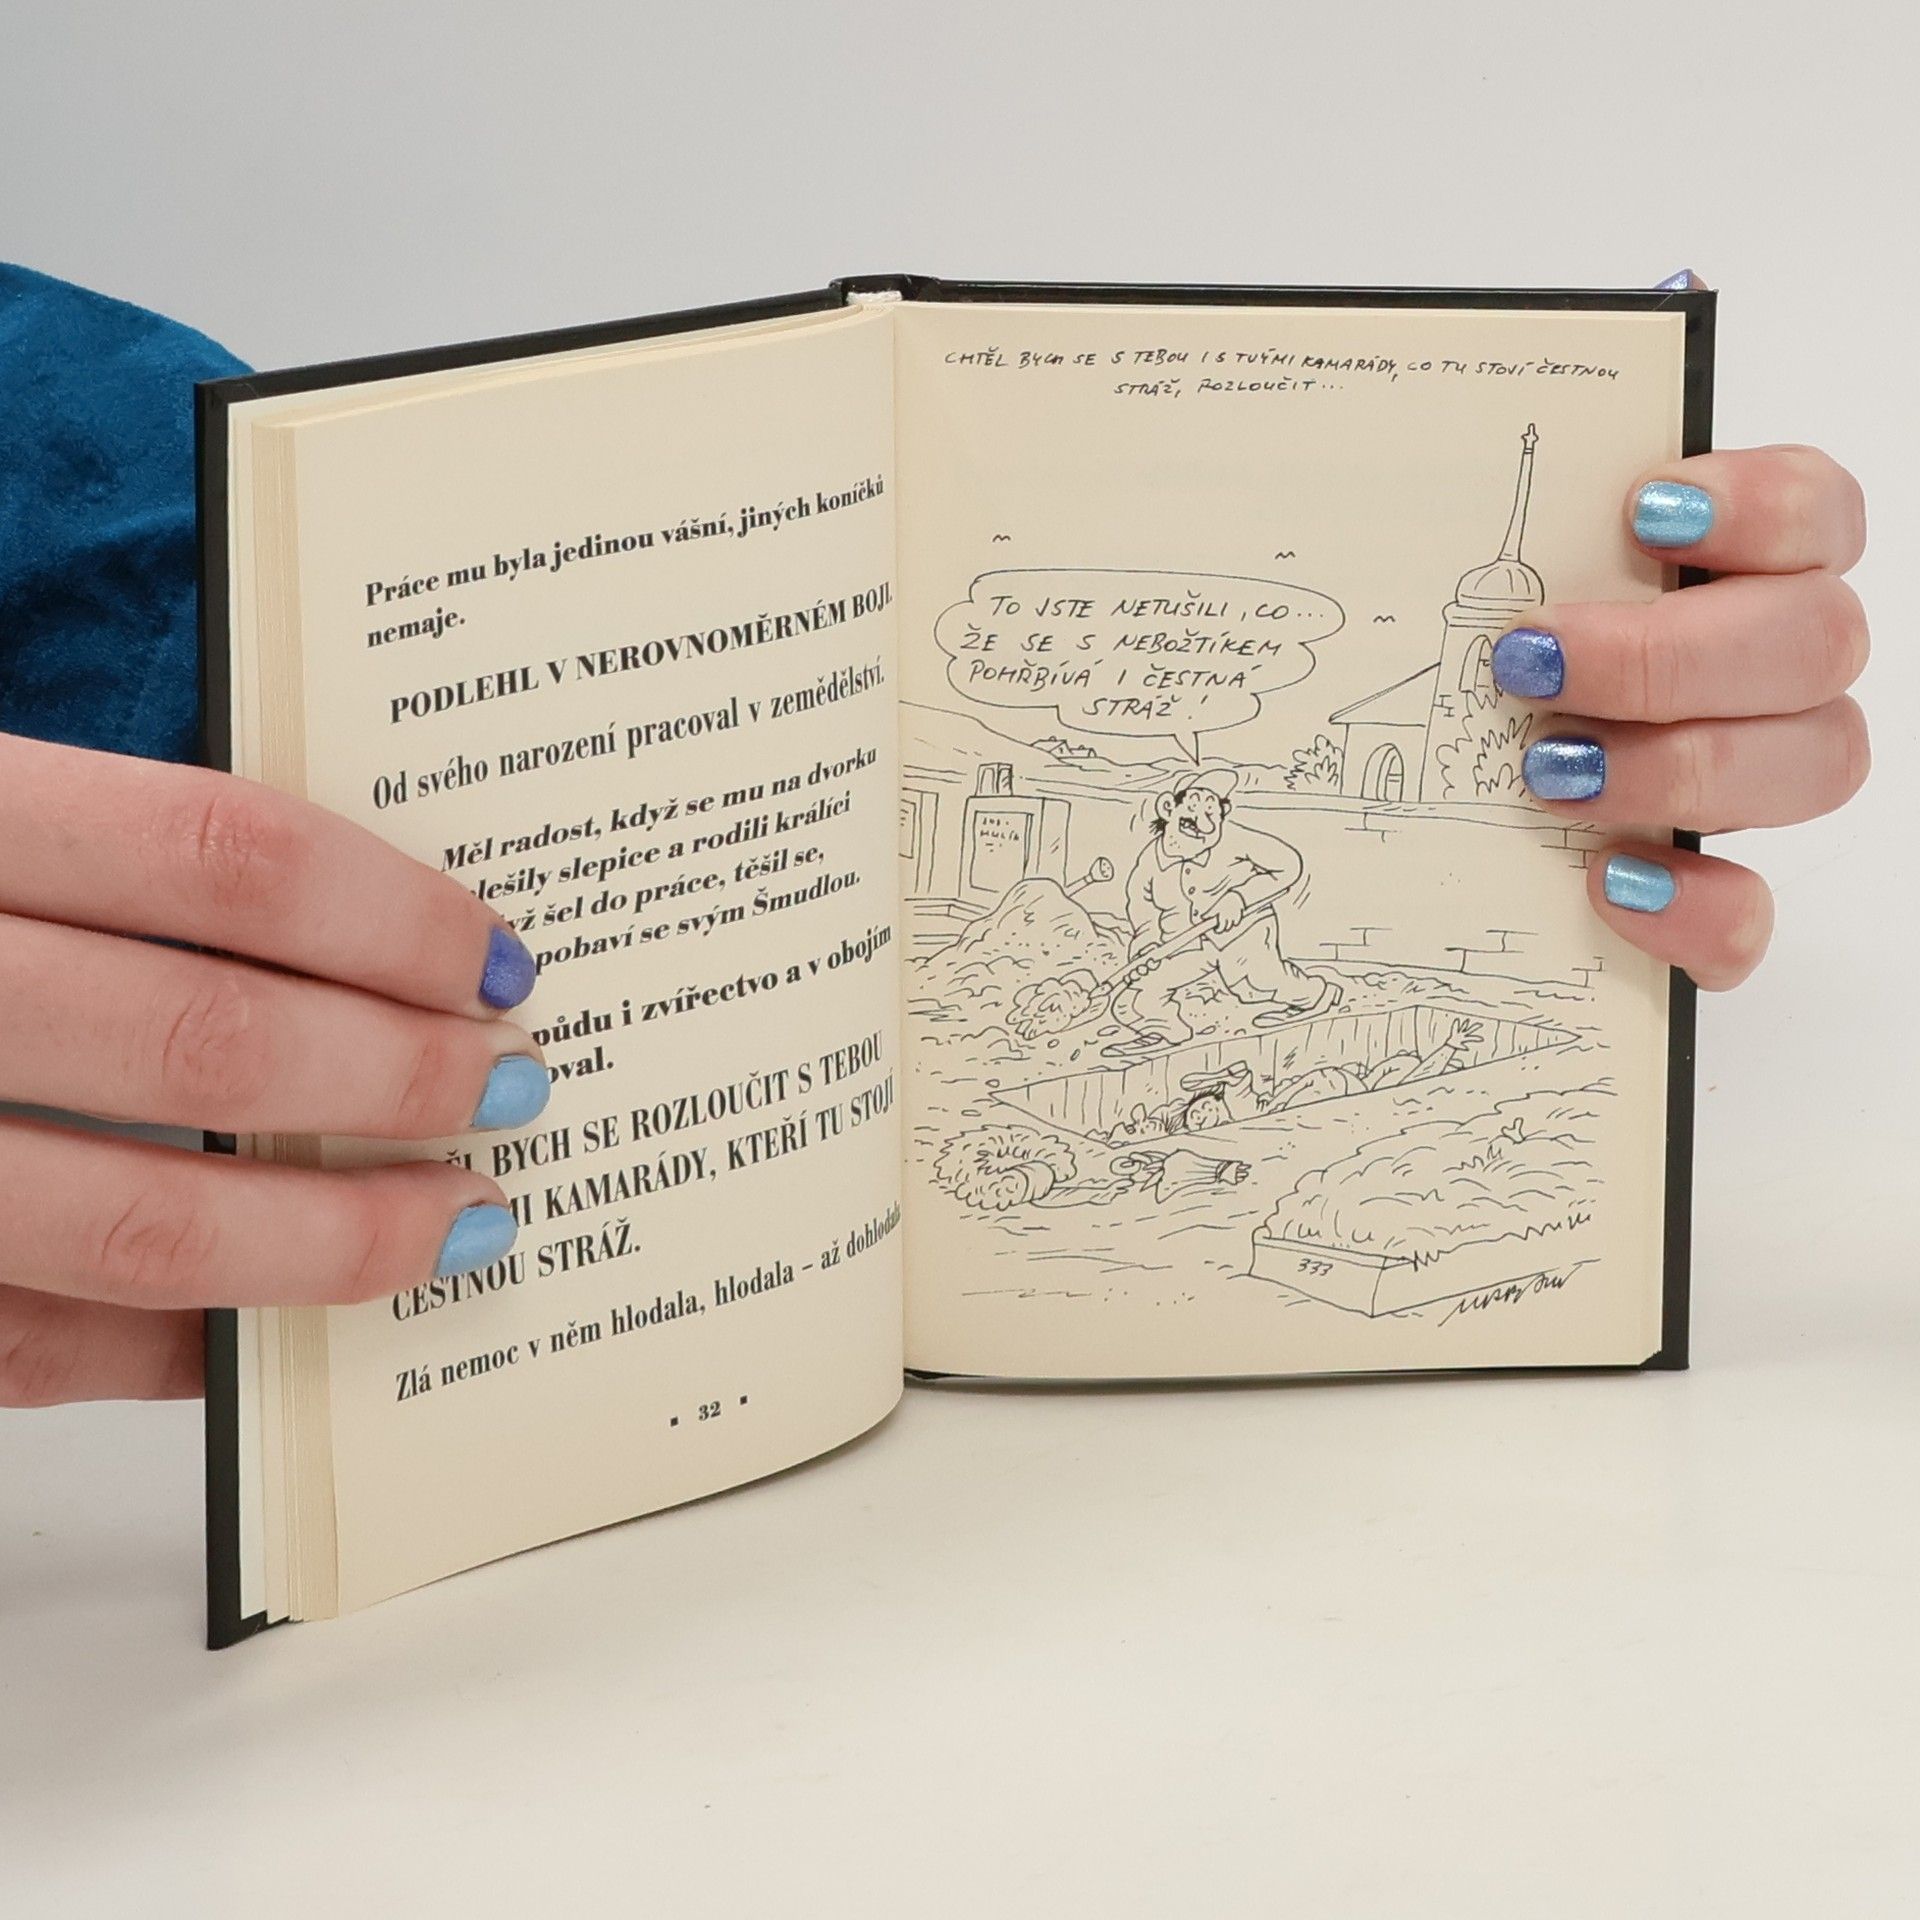 Práce mu byla jedinou vášní, jiných koníčků
nemaje.
PODLEHL V NEROVNOMĚRNÉM BOJI.
Od svého narození pracoval v zemědělství.
Měl radost, když se mu na dvorku
slepice a rodili králíci
šel do práce, těšil se,
pobaví se svým Šmudlou.
půdu i zvířectvo a v obojím
BYCH SE ROZLOUČIT S TEBOU
KAMARÁDY, KTEŘÍ TU STOJÍ
ČESTNOU STRÁŽ.
Zlá nemoc v něm hlodala, hlodala – až dohlodala
▪ 32 ▪
CHTĚL BYCH SE S TEBOU I S TVÝMI KAMARÁDY, CO TU STOVÍ ČESTNOU
STRÁŽ, ROZLOUČIT...
TO JSTE NETUŠILI, CO...
ŽE SE S NEBOŽTÍKEM
POHŘBÍVÁ I ČESTNÁ
STRÁŽ!
333